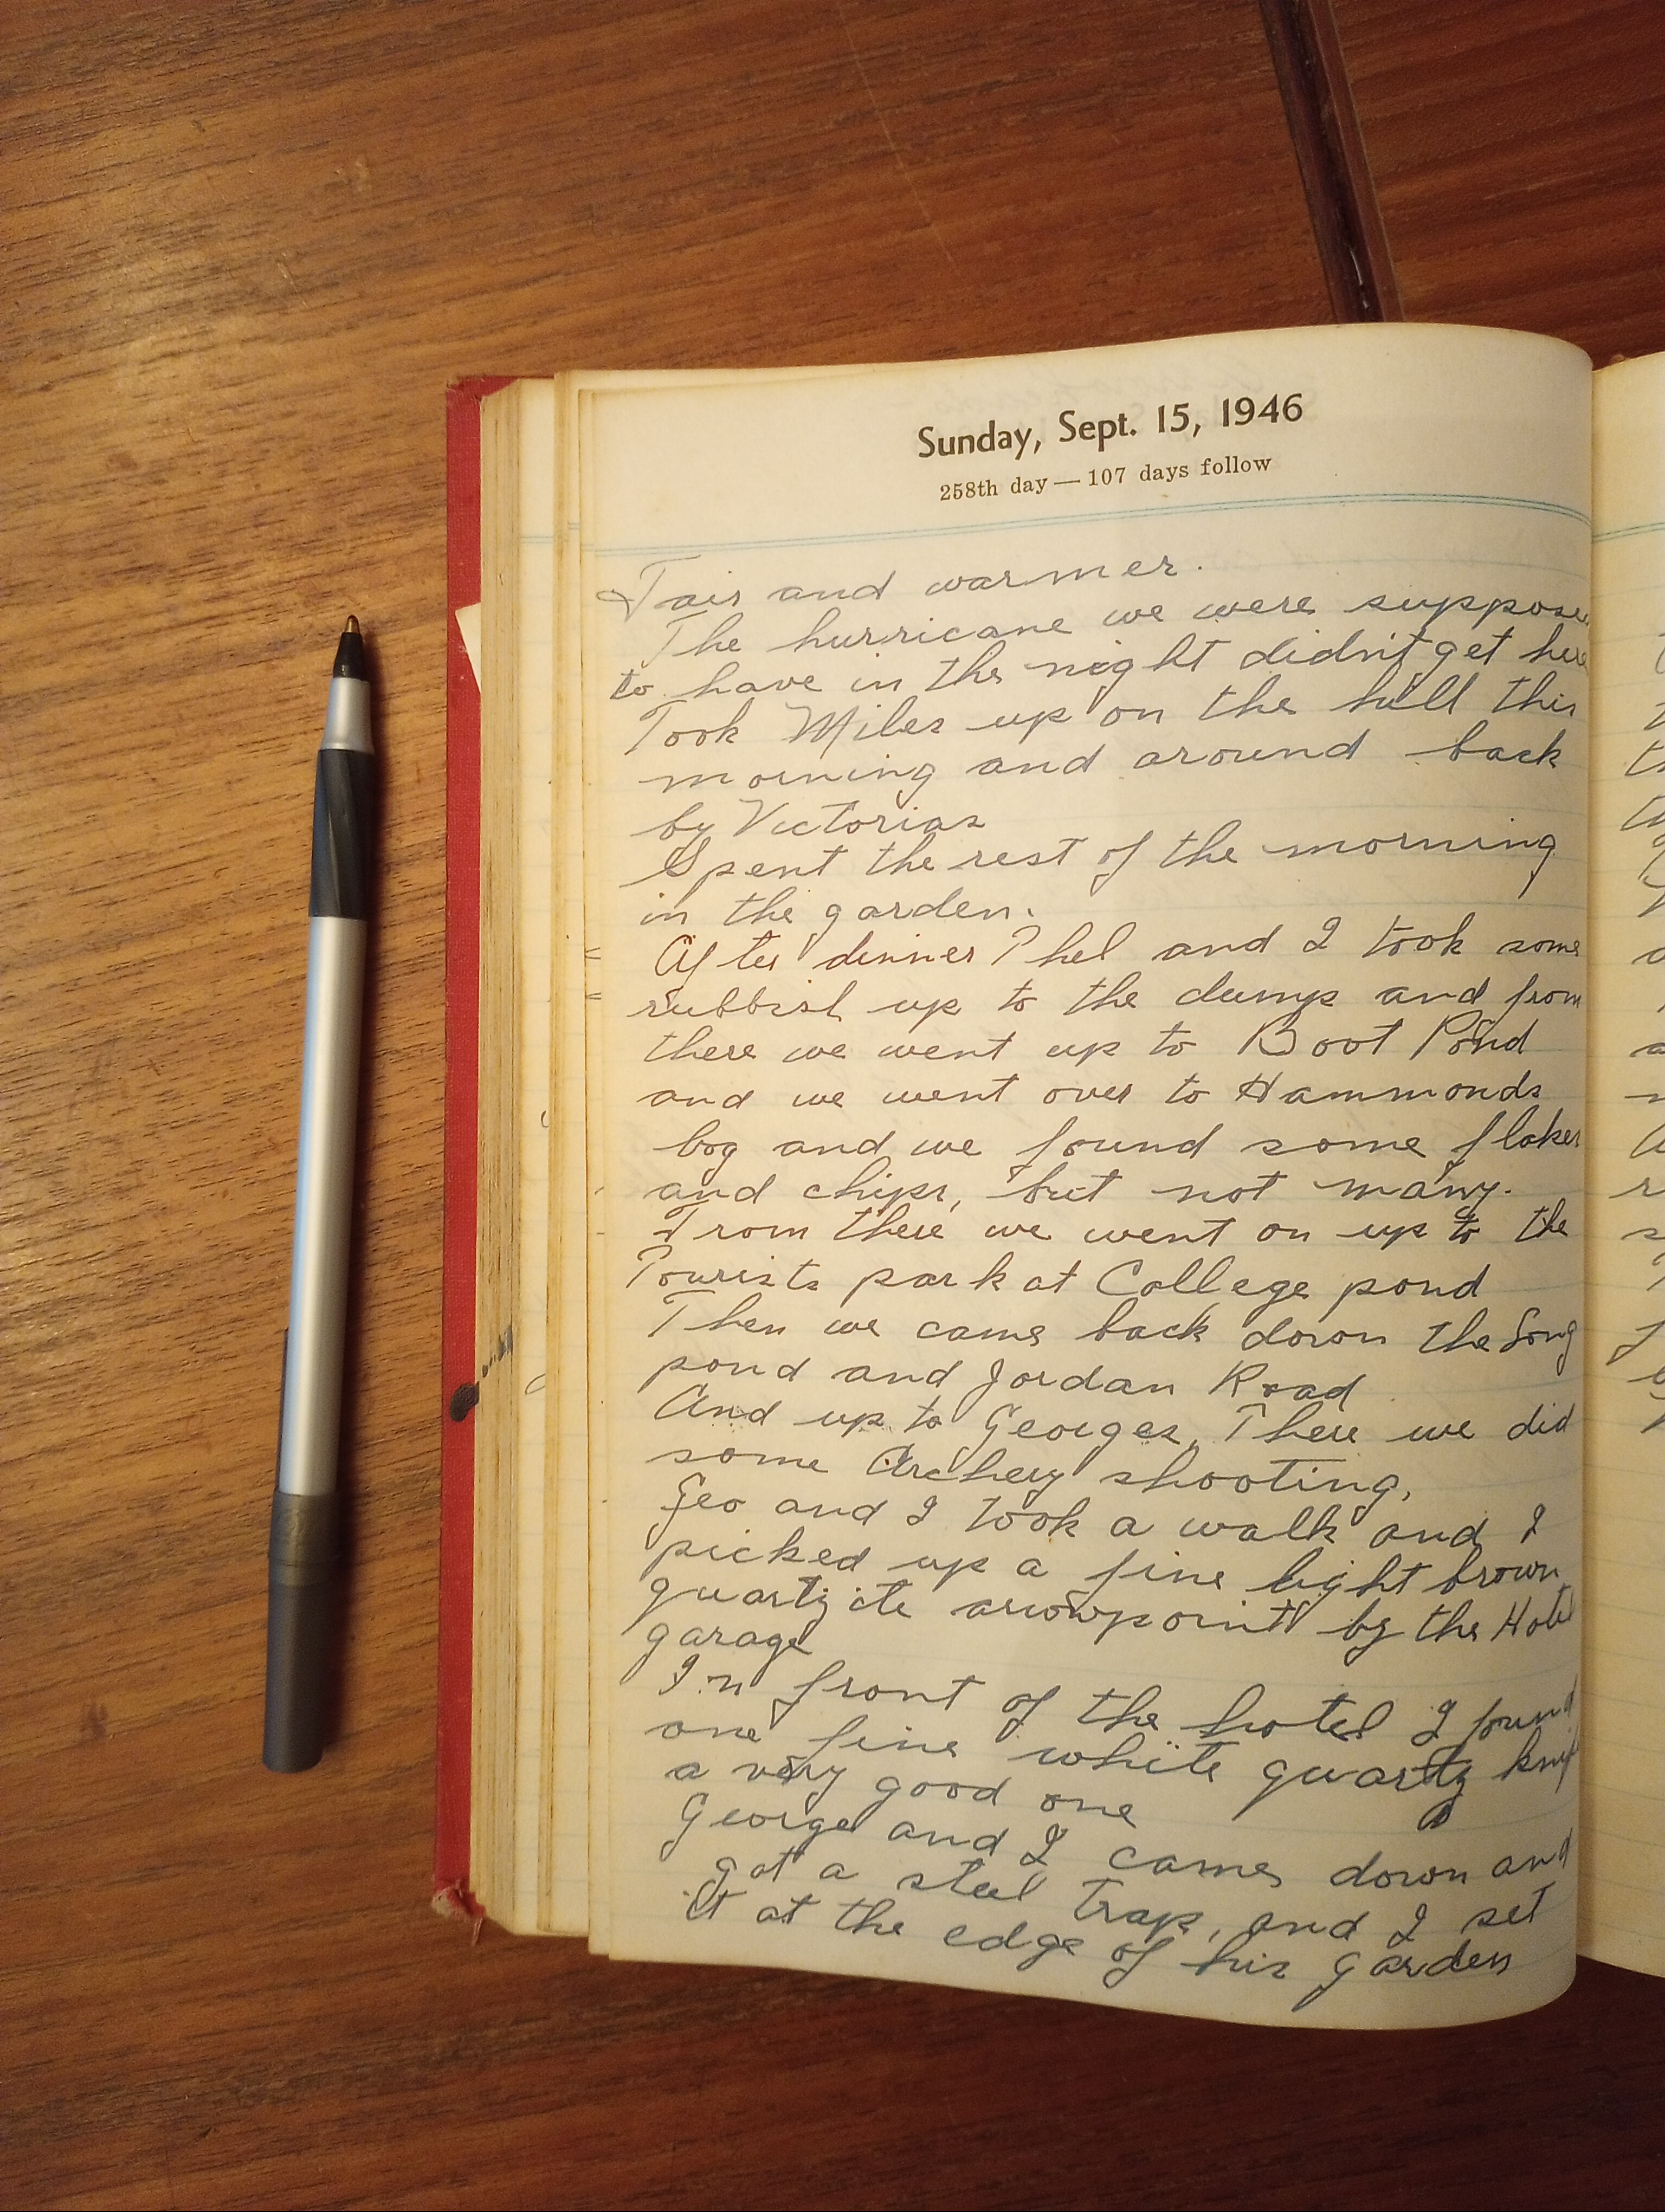 Sunday, Sept. 15, 1946
258th day — 107 days follow
Fair and warmer.
The hurricane we were suppose
to have in the night didn't get here
Took Miles up on the hill this
morning and around back
by Victorias
Spent the rest of the morning
in the garden.
After dinner Phel and I took some
rubbish up to the dump and from
there we went up to Boot Pond
and we went over to Hammonds
bog and we found some flakes
and chips, but not many.
From there we went on up to the
Tourists park at College pond
Then we came back down the Long
pond and Jordan Road
And up to Georges, There we did
some Archery shooting,
Geo and I took a walk and I
picked up a fine light brown
quartzite arowpoint by the Hotel
garage
In front of the hotel I found
one fine white quartz
a very good one
George and I came down and
got a steel trap, and I set
it at the edge of his garden